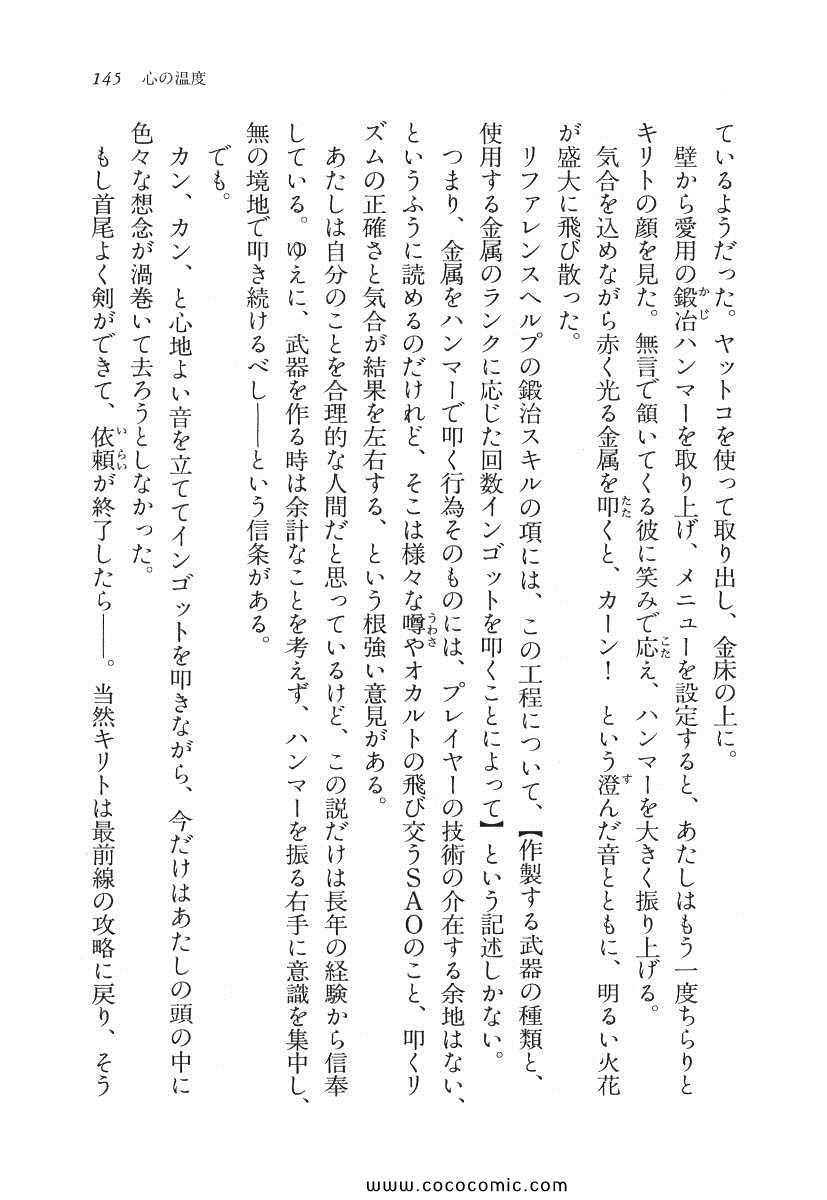 145　心の温度
ているようだった。ヤットコを使って取り出し、金床の上に。
　壁から愛用の鍛冶ハンマーを取り上げ、メニューを設定すると、あたしはもう一度ちらりと
キリトの顔を見た。無言で頷いてくる彼に笑みで応え、ハンマーを大きく振り上げる。
　気合を込めながら赤く光る金属を叩くと、カーン！　という澄んだ音とともに、明るい火花
が盛大に飛び散った。
　リファレンスヘルプの鍛治スキルの項には、この工程について、【作製する武器の種類と、
使用する金属のランクに応じた回数インゴットを叩くことによって】という記述しかない。
　つまり、金属をハンマーで叩く行為そのものには、プレイヤーの技術の介在する余地はない、
というふうに読めるのだけれど、そこは様々な噂やオカルトの飛び交うＳＡＯのこと、叩くリ
ズムの正確さと気合が結果を左右する、という根強い意見がある。
　あたしは自分のことを合理的な人間だと思っているけど、この説だけは長年の経験から信奉
している。ゆえに、武器を作る時は余計なことを考えず、ハンマーを振る右手に意識を集中し、
無の境地で叩き続けるべし――という信条がある。
　でも。
　カン、カン、と心地よい音を立ててインゴットを叩きながら、今だけはあたしの頭の中に
色々な想念が渦巻いて去ろうとしなかった。
　もし首尾よく剣ができて、依頼が終了したら――。当然キリトは最前線の攻略に戻り、そう
www.cococomic.com